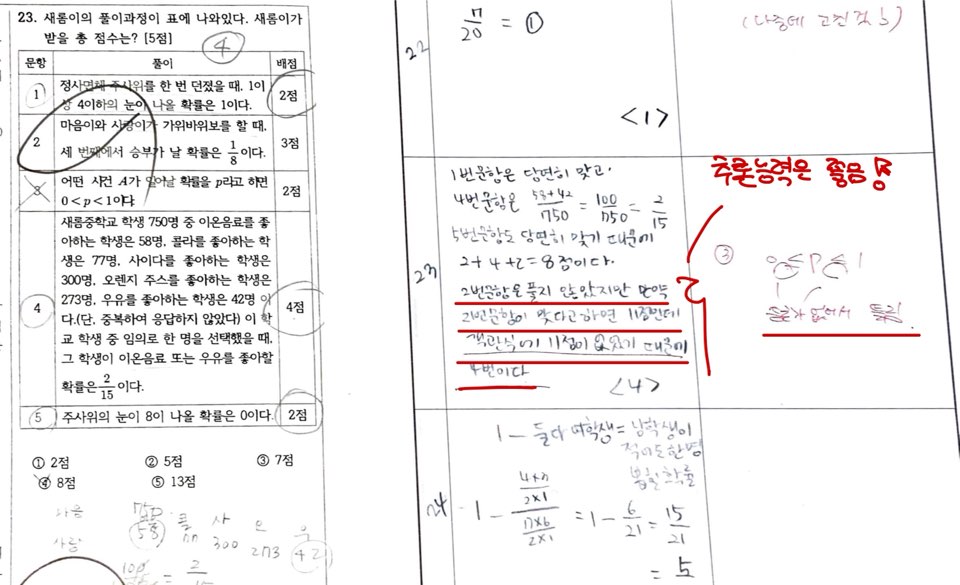 23. 새롬이의 풀이과정이 표에 나와있다. 새롬이가
받을 총 점수는? [5점]
④
문항 풀이 배점
1 정사면체 주사위를 한 번 던졌을 때, 1이
상 4이하의 눈이 나올 확률은 1이다. 2점
2 마음이와 사랑이가 가위바위보를 할 때,
세 번째에서 승부가 날 확률은 1/8 이다. 3점
3 어떤 사건 A가 일어날 확률을 p라고 하면
0<p<1이다 2점
4 새롬중학교 학생 750명 중 이온음료를 좋
아하는 학생은 58명, 콜라를 좋아하는 학
생은 77명, 사이다를 좋아하는 학생은
300명, 오렌지 주스를 좋아하는 학생은
273명, 우유를 좋아하는 학생은 42명 이
다.(단, 중복하여 응답하지 않았다) 이 학
교 학생 중 임의로 한 명을 선택했을 때,
그 학생이 이온음료 또는 우유를 좋아할
확률은 2/15 이다. 4점
5 주사위의 눈이 8이 나올 확률은 0이다. 2점
① 2점 ② 5점 ③ 7점
④ 8점 ⑤ 13점
마음
사랑
58 77 300 273 42
콜 사 오 우
22
7/20 = ①
(나중에 고친 것)
<1>
23
1번문항은 당연히 맞고.
4번문항은 58+42/750 = 100/750 = 2/15
5번문항도 당연히 맞기 때문에
2+4+2=8점이다.
2번문항을 풀지 않았지만 만약
2번문항이 맞다고하면 11점인데
객관식에 11점이 없었기 때문에
4번이다
<4>
추론능력은 좋음
③ 0≤P≤1
없어서 틀림
24
1 - 둘다 여학생 = 남학생이
적어도 한명
뽑힐 확률
= 1 - 6/21 = 15/21
= 5